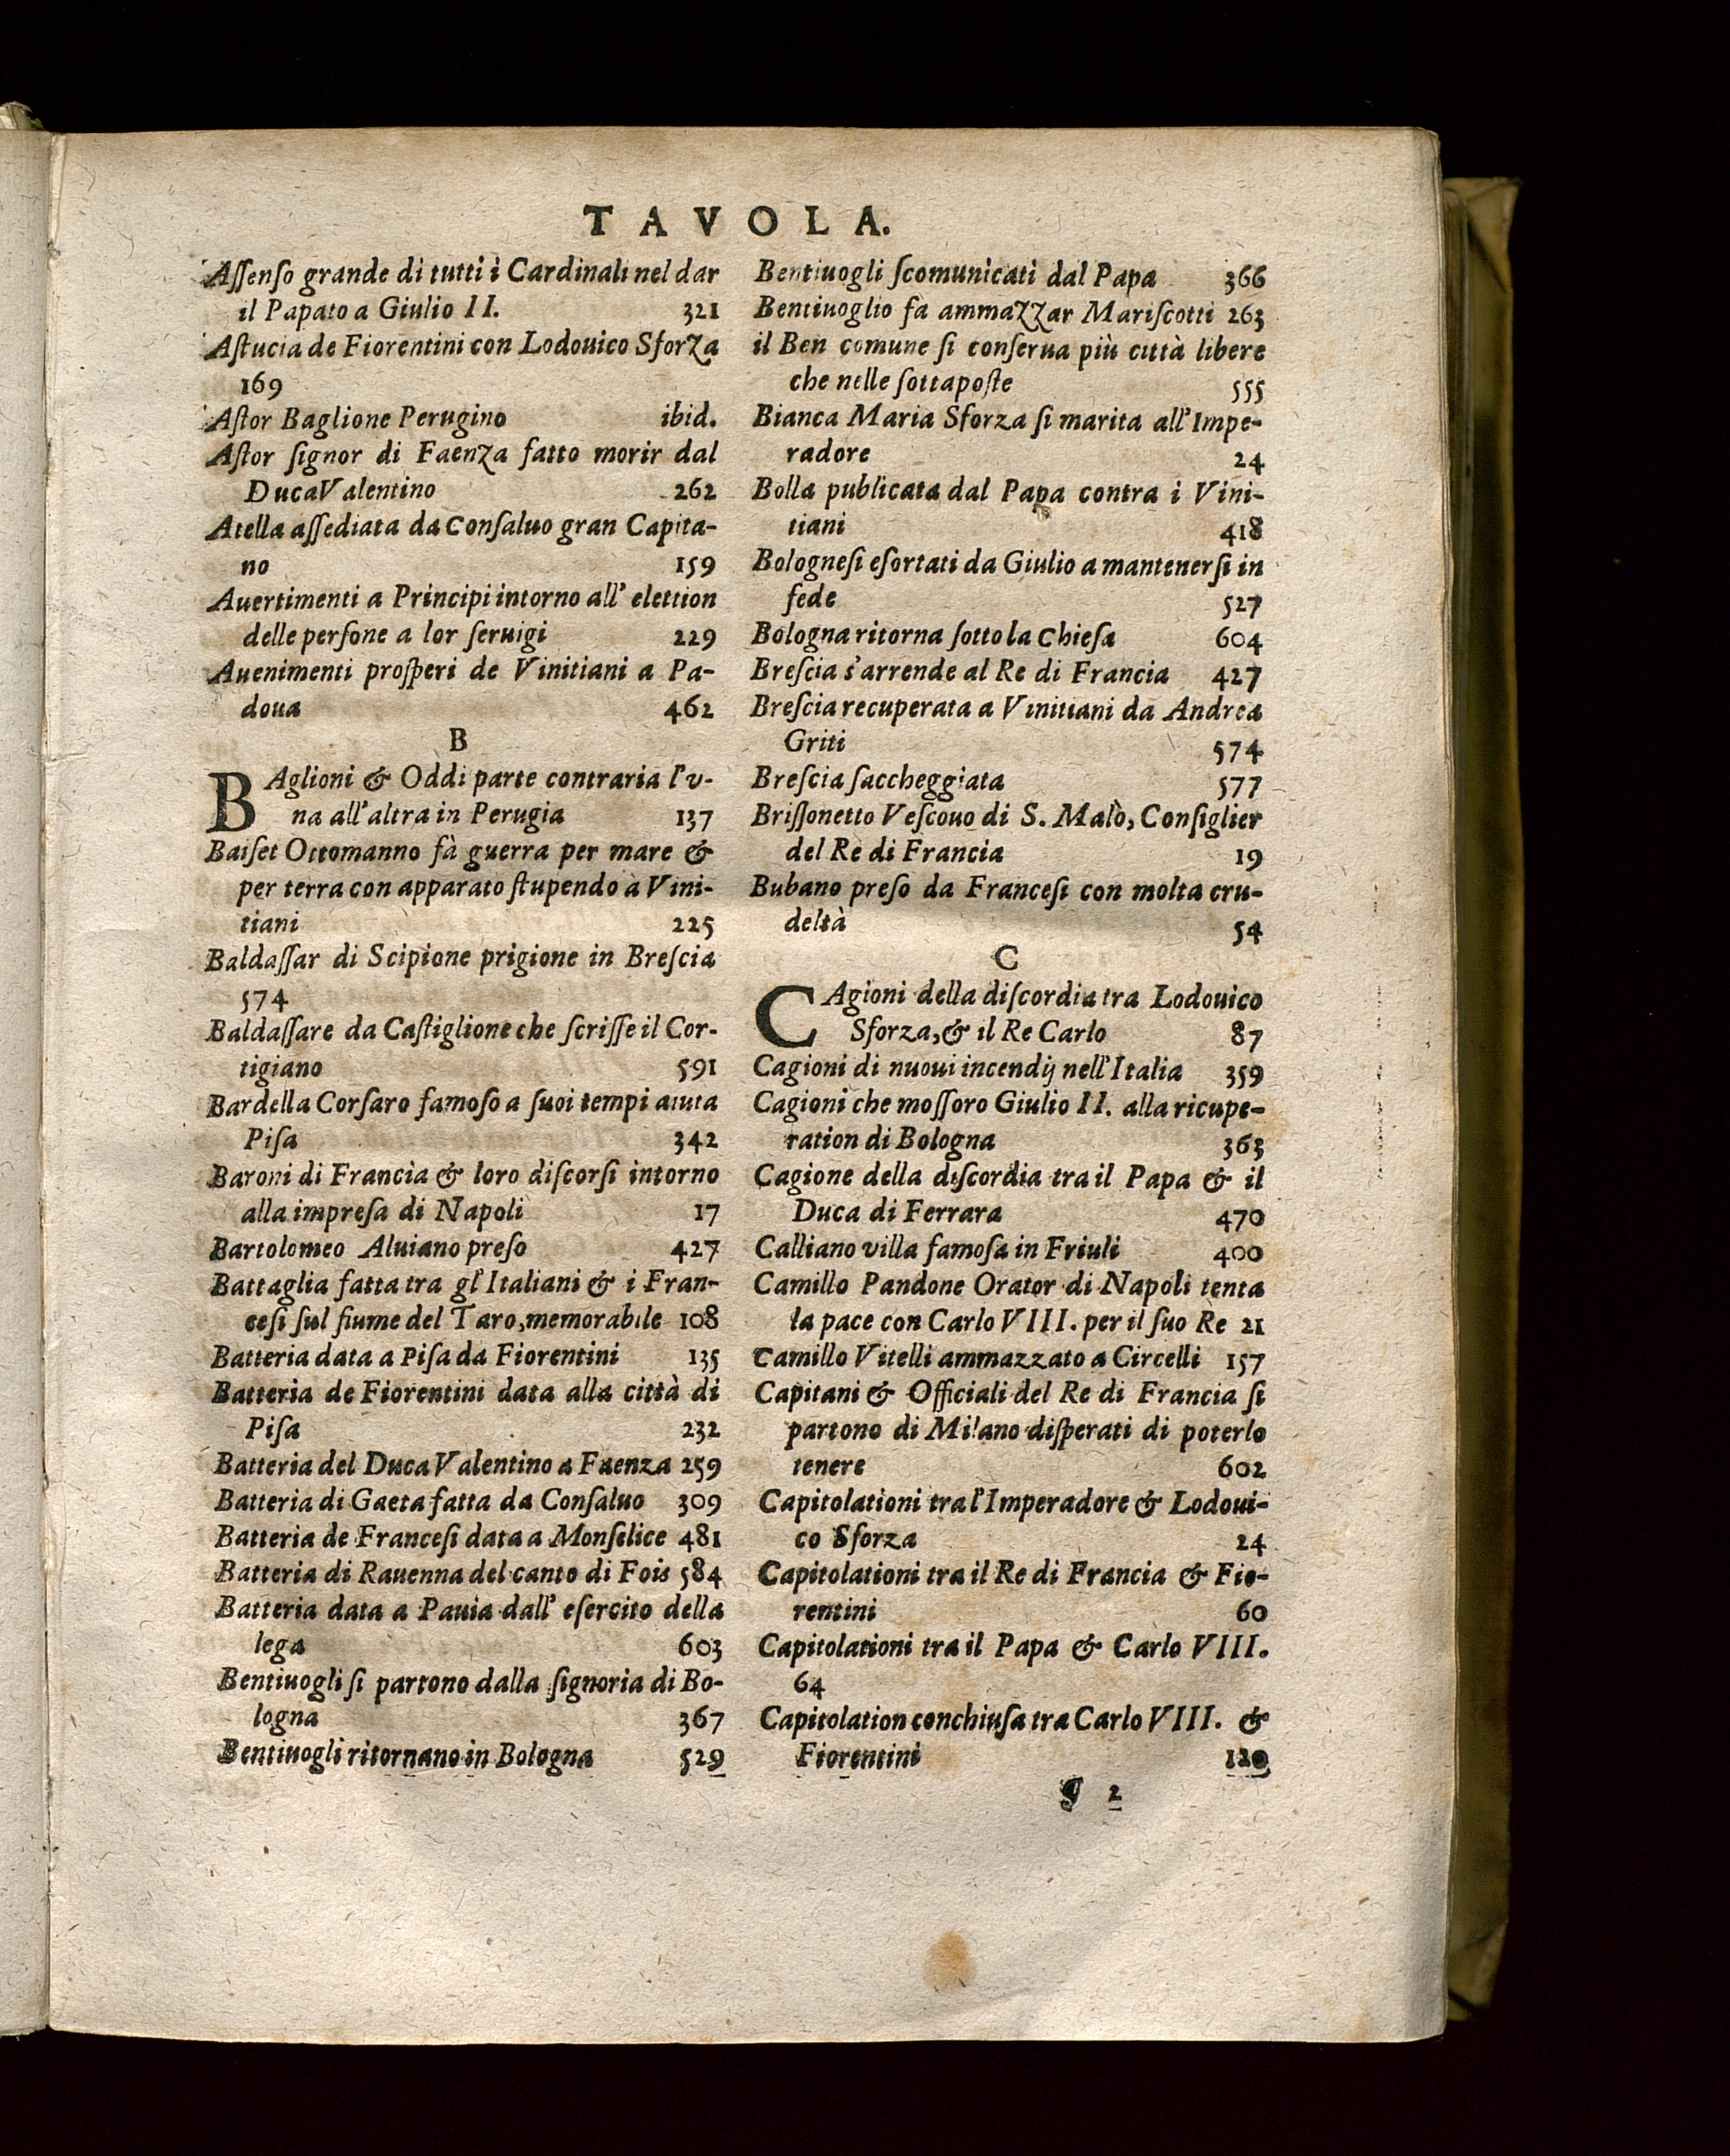 TAVOLA.
Aſſenſo grande di tutti i Cardinali nel dar
il Papato a Giulio II. 321
Aſtucia de Fiorentini con Lodouico Sforza
169
Aſtor Baglione Perugino ibid.
Aſtor ſignor di Faenza fatto morir dal
Duca Valentino 262
Atella aſſediata da Conſaluo gran Capita-
no 159
Auertimenti a Principi intorno all' elettion
delle perſone a lor ſeruigi 229
Auenimenti proſperi de Vinitiani a Pa-
doua 462
B
BAglioni & Oddi parte contraria l'v-
na all'altra in Perugia 137
Baiſet Ottomanno fà guerra per mare &
per terra con apparato ſtupendo a Vini-
tiani 225
Baldaſſar di Scipione prigione in Breſcia
574
Baldaſſare da Caſtiglione che ſcriſſe il Cor-
tigiano 591
Bardella Corſaro famoſo a ſuoi tempi aiuta
Piſa 342
Baroni di Francia & loro diſcorſi intorno
alla impreſa di Napoli 17
Bartolomeo Aluiano preſo 427
Battaglia fatta tra gl'Italiani & i Fran-
ceſi ſul fiume del Taro, memorabile 108
Batteria data a Piſa da Fiorentini 135
Batteria de Fiorentini data alla città di
Piſa 232
Batteria del Duca Valentino a Faenza 259
Batteria di Gaeta fatta da Conſaluo 309
Batteria de Franceſi data a Monſelice 481
Batteria di Rauenna del canto di Fois 584
Batteria data a Pauia dall' eſercito della
lega 603
Bentiuogli ſi partono dalla ſignoria di Bo-
logna 367
Bentiuogli ritornano in Bologna 529
Bentiuogli ſcomunicati dal Papa 366
Bentiuoglio fa ammazzar Mariſcotti 263
il Ben comune ſi conſerua più città libere
che nelle ſottapoſte 555
Bianca Maria Sforza ſi marita all'Impe-
radore 24
Bolla publicata dal Papa contra i Vini-
tiani 418
Bologneſi eſortati da Giulio a mantenerſi in
fede 527
Bologna ritorna ſotto la Chieſa 604
Breſcia s'arrende al Re di Francia 427
Breſcia recuperata a Vinitiani da Andrea
Griti 574
Breſcia ſaccheggiata 577
Briſſonetto Veſcouo di S. Malò, Conſiglier
del Re di Francia 19
Bubano preſo da Franceſi con molta cru-
deltà 54
C
CAgioni della diſcordia tra Lodouico
Sforza, & il Re Carlo 87
Cagioni di nuoui incendij nell'Italia 359
Cagioni che moſſoro Giulio II. alla ricupe-
ration di Bologna 363
Cagione della diſcordia tra il Papa & il
Duca di Ferrara 470
Calliano villa famoſa in Friuli 400
Camillo Pandone Orator di Napoli tenta
la pace con Carlo VIII. per il ſuo Re 21
Camillo Vitelli ammazzato a Circelli 157
Capitani & Officiali del Re di Francia ſi
partono di Milano diſperati di poterlo
tenere 602
Capitolationi tra l'Imperadore & Lodoui-
co Sforza 24
Capitolationi tra il Re di Francia & Fio-
rentini 60
Capitolationi tra il Papa & Carlo VIII.
64
Capitolation conchiuſa tra Carlo VIII. &
Fiorentini 120
¶ 2